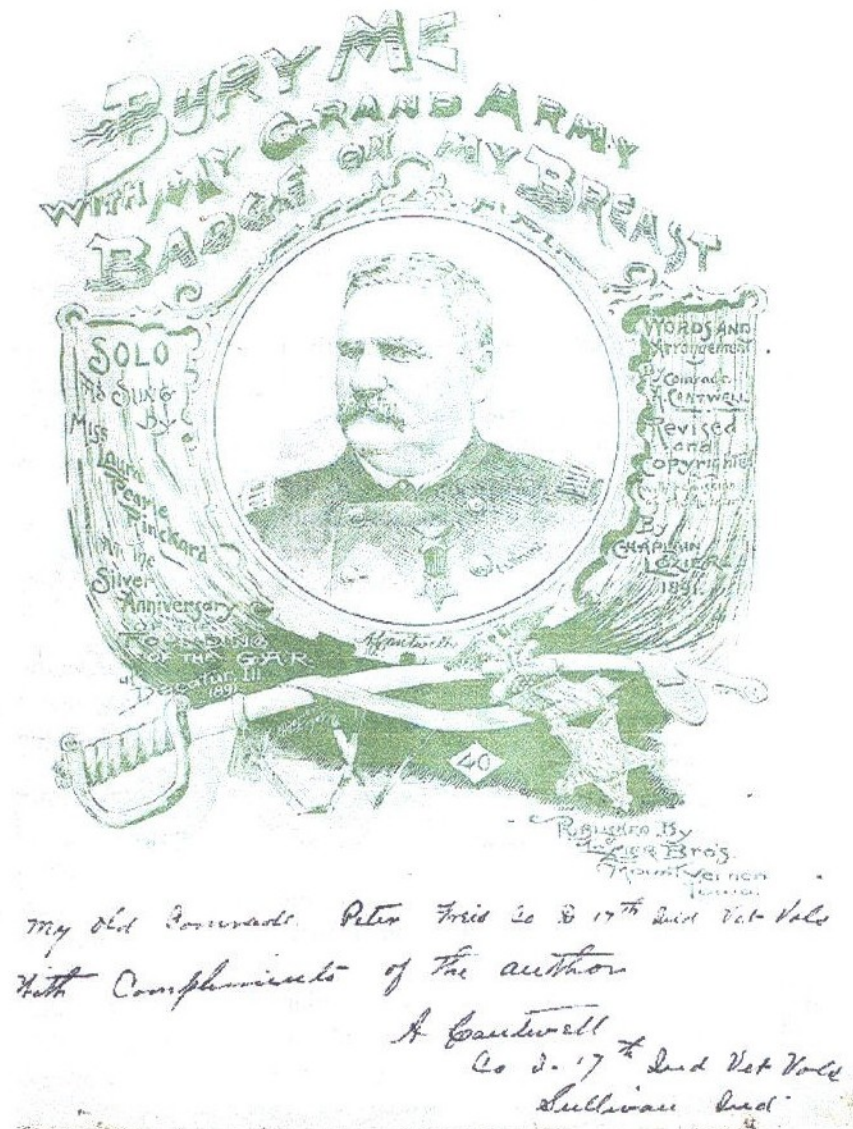 BURY ME
WITH MY GRAND ARMY
BADGE ON MY BREAST
SOLO
AS SUNG
By
Miss
Laura
Pearle
Rinckard
At the
Silver
Anniversary
OF
FOUNDING
OF THE G.A.R.
at Decatur, Ill
1891
WORDS AND
Arrangement
By Comrade
A. CANTWELL
Revised
and
Copyrighted
By
CHAPLAIN
LOZIER
1891.
A Cantwell
40
PUBLISHED By
LOZIER Bro's.
Mount Vernon
Iowa.
My old Comrade Peter Freis Co D 17th Ind Vet Vols
With Compliments of the author
A Cantwell
Co D. 17th Ind Vet Vols
Sullivan Ind